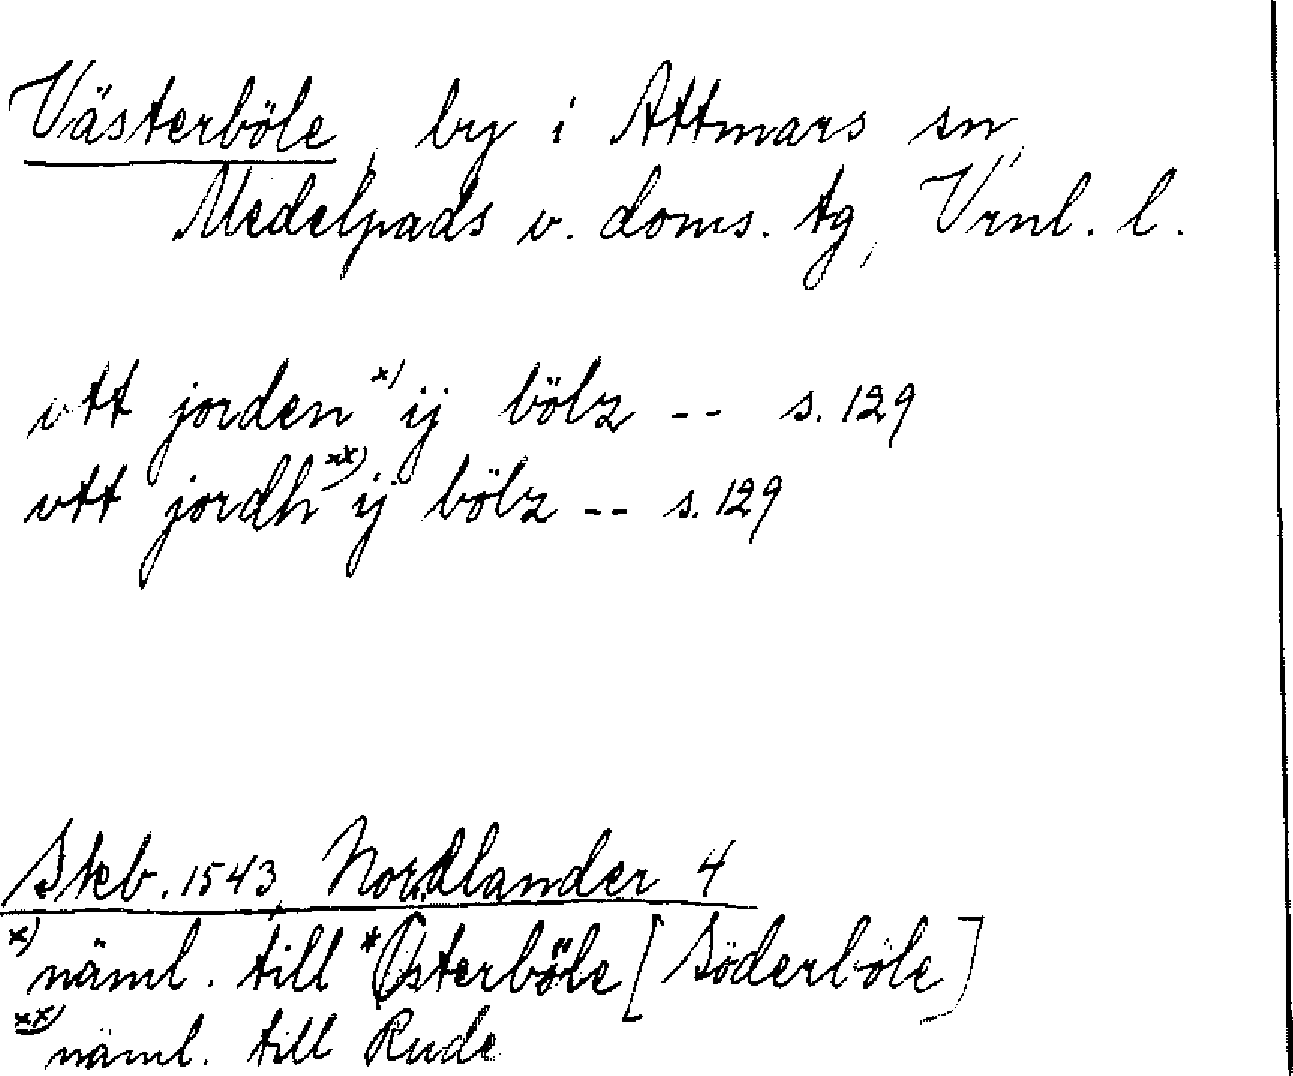 Västerböle, by i Attmars sn,
Medelpads v. doms. tg, Vrnl. l.
vtt jorden x) ij bölz -- s. 129
vtt jordh xx) ij bölz -- s. 129
Skb. 1543, Nordlander 4
x) näml. till *Österböle [Söderböle]
xx) näml. till Rude